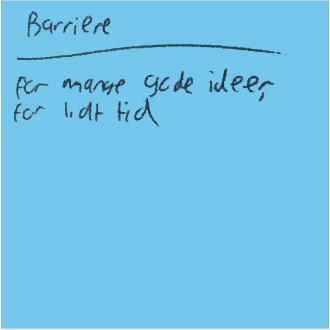 Barriere
For mange gode ideer,
for lidt tid